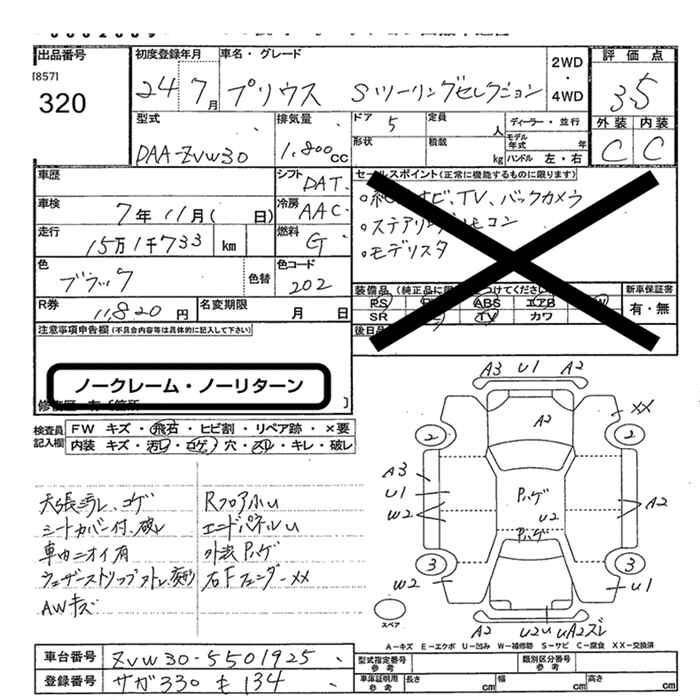 出品番号
[857]
320
初度登録年月
24 7月
車名・グレード
プリウス Sツーリングセレクション
2WD
・
4WD
評価点
3.5
外装 内装
C C
型式
DAA-ZVW30
排気量
1,800cc
ドア 5
定員 人
形状
積載 kg
ディーラー・並行
モデル年式 年
ハンドル 左・右
車歴
シフト DAT
車検
7年11月( 日)
冷房 AAC
走行
15万1千733 km
燃料 G
色
ブラック
色替
色コード
202
R券
11,820円
名変期限
月 日
セールスポイント(正常に機能するものに限ります)
ナビ、TV、バックカメラ
。モデリスタ
装備品
新車保証書
有・無
PS ABS エアB
SR TV カワ
後日品
注意事項申告欄(不具合内容等は具体的に記入して下さい)
ノークレーム・ノーリターン
検査員記入欄
FW キズ・飛石・ヒビ割・リペア跡・×要
内装 キズ・汚レ・コゲ・穴・スレ・キレ・破レ
天張汚レ、コゲ
シートカバー付、破レ
車内ニオイ有
AWキズ
Rフロア小U
エンドパネルU
外装ハゲ
右FフェンダーXX
A3 U1 A2
A2
XX
2 2
A3
U1
W2
ハゲ
U2
ハゲ
A2
3 3
W2
U1
A2 U2U UA2ズレ
スペア
A-キズ E-エクボ U-凹み W-補修跡 S-サビ C-腐食 XX-交換済
車台番号 ZVW30-5501925
登録番号 サガ330 も 134
型式指定番号 参考
類別区分番号 参考
車庫証明用 参考
長さ cm
幅 cm
高さ cm